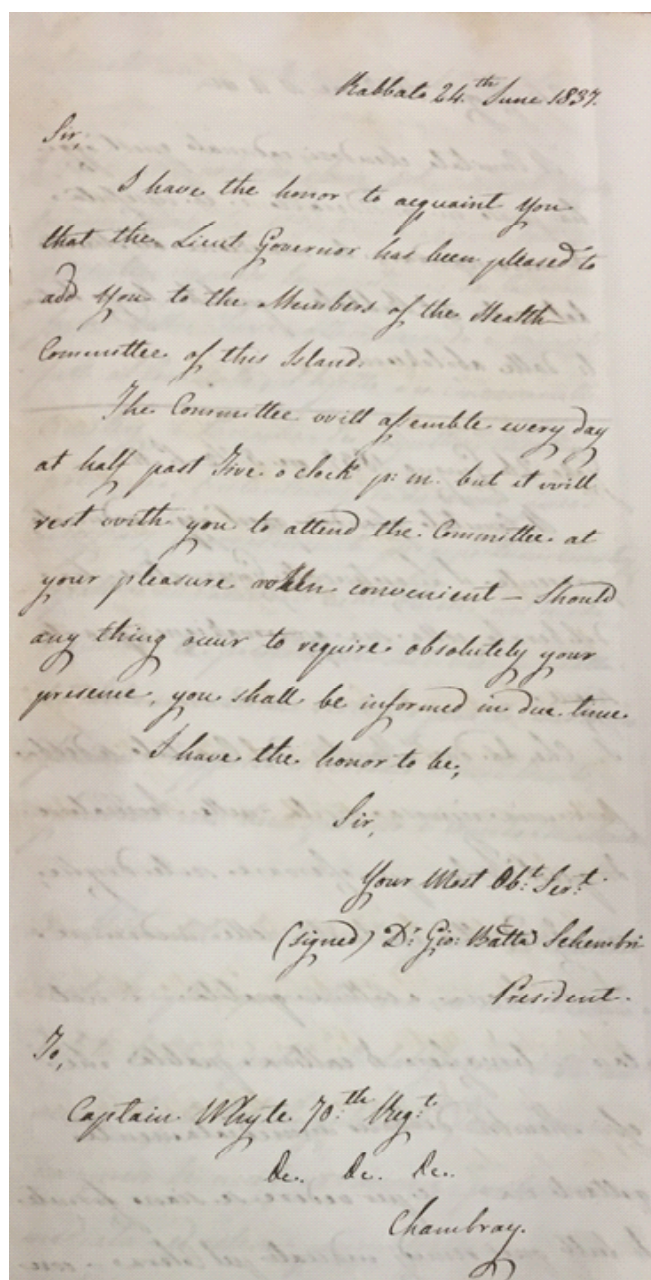 Rabbato 24.th June 1837.
Sir,
I have the honor to acquaint you
that the Lieut Governor has been pleased to
add you to the Members of the Health
Committee of this Island.
The Committee will assemble every day
at half past Five o'clock p: m. but it will
rest with you to attend the Committee at
your pleasure when convenient – Should
any thing occur to require absolutely your
presence, you shall be informed in due time.
I have the honor to be,
Sir,
Your Most Ob:t Ser:t
(signed) Dr Gio: Batta Schembri
President.
To,
Captain Whyte 70:th Reg:t
&c. &c. &c.
Chambray.